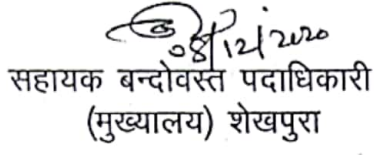 08/12/2020
सहायक बन्दोवस्त पदाधिकारी
(मुख्यालय) शेखपुरा